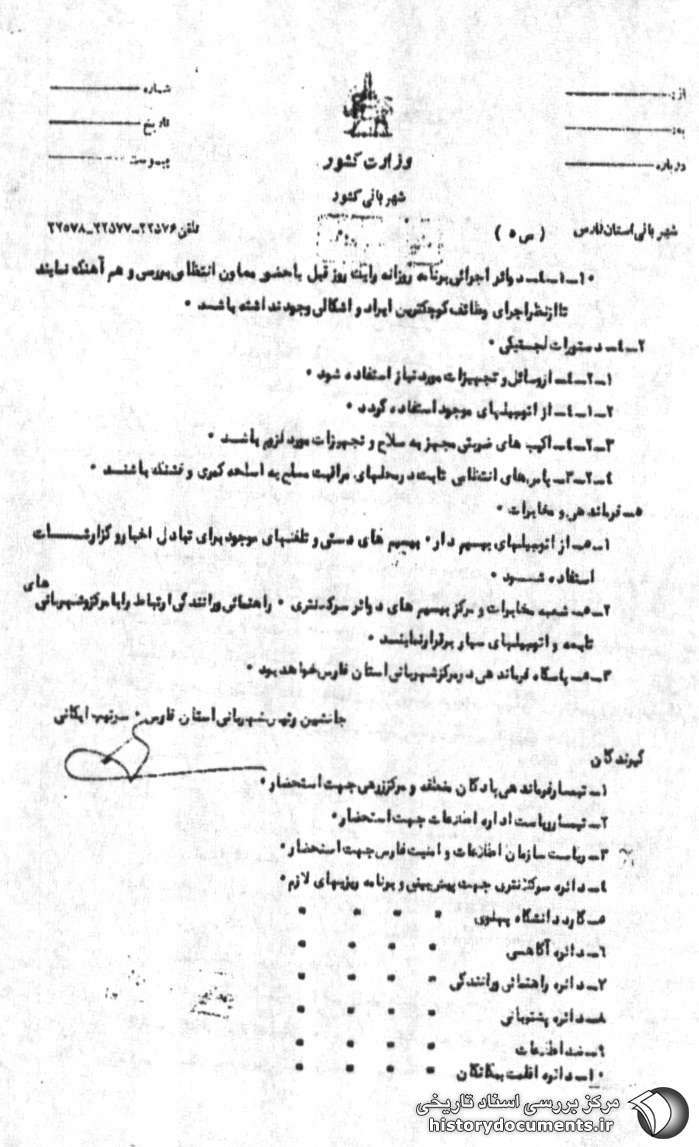 از:
به:
درباره
وزارت کشور
شهربانی کشور
شماره
تاریخ
پیوست
شهربانی استان فارس
( ص ۵ )
تلفن ۲۲۵۷۶ـ۲۲۵۷۷ـ۲۲۵۷۸
۱۰ـ۱ـ۴ـ دوائر اجرائی برنامه روزانه رایک روز قبل باحضور معاون انتظامی بررسی و هم آهنگ نمایند
تا ازنظر اجرای وظائف کوچکترین ایراد و اشکالی وجود نداشته باشد ۰
۲ـ۴ـ دستورات لجستیکی ۰
۱ـ۲ـ۴ـ از وسائل و تجهیزات مورد نیاز استفاده شود ۰
۲ـ۱ـ۴ـ از اتومبیلهای موجود استفاده گردد ۰
۳ـ۲ـ۴ـ اکیپ های ضربتی مجهز به سلاح و تجهیزات مورد لزوم باشد ۰
۴ـ۲ـ۳ـ پاس های انتظامی ثابت در محلهای مراقبت مسلح به اسلحه کمری و فشنگ باشند ۰
۵ـ فرماندهی و مخابرات ۰
۱ـ۵ـ از اتومبیلهای بیسیم دار ۰ بیسیم های دستی و تلفنهای موجود برای تبادل اخبار و گزارشات
استفاده شود ۰
۲ـ۵ـ شعبه مخابرات و مرکز بیسیم های دوائر سرکلانتری ۰ راهنمائی ورانندگی ارتباط رابا مرکز و شهربانی های
تابعه و اتومبیلهای سیار برقرار نمایند ۰
۳ـ۵ـ پاسگاه فرماندهی در مرکز شهربانی استان فارس خواهد بود ۰
جانشین رئیس شهربانی استان فارس ۰ سرتیپ ایکانی
گیرندگان
۱ـ تیمسار فرماندهی پادگان منطقه و مرکز زرهی جهت استحضار ۰
۲ـ تیمسار ریاست اداره اطلاعات جهت استحضار ۰
۳ـ ریاست سازمان اطلاعات و امنیت فارس جهت استحضار ۰
۴ـ دائره سرکلانتری جهت پیش بینی و برنامه ریزیهای لازم ۰
۵ـ گارد دانشگاه پهلوی " " " "
۶ـ دائره آگاهی " " " "
۷ـ دائره راهنمائی ورانندگی " " " "
۸ـ دائره پشتیبانی " " " "
۹ـ ضد اطلاعات " " " "
۱۰ـ دائره اقامت بیگانگان " " " "
مرکز بررسی اسناد تاریخی
historydocuments.ir